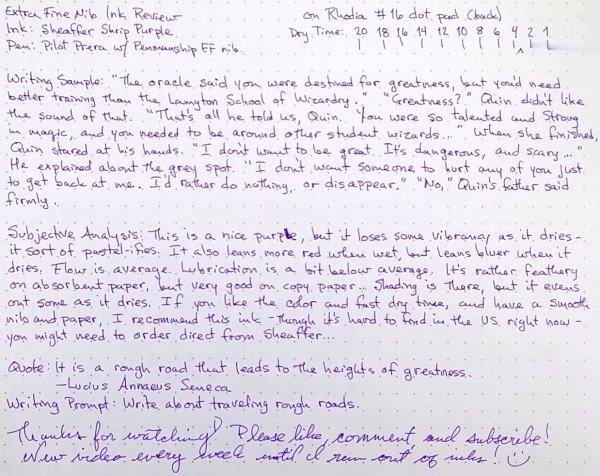 Extra Fine Nib Ink Review on Rhodia #16 dot pad (back)
Ink: Sheaffer Skrip Purple Dry Time: 20 18 16 14 12 10 8 6 4 2 1
Pen: Pilot Prera w/ Penmanship EF nib.
Writing Sample: "The oracle said you were destined for greatness, but you'd need
better training than the Lamyton School of Wizardry." "Greatness?" Quin didn't like
the sound of that. "That's all he told us, Quin. You were so talented and strong
in magic, and you needed to be around other student wizards..." When she finished,
Quin stared at his hands. "I don't want to be great. It's dangerous, and scary..."
He explained about the grey spot. "I don't want someone to hurt any of you just
to get back at me. I'd rather do nothing, or disappear." "No," Quin's father said
firmly.
Subjective Analysis: This is a nice purple, but it loses some vibrancy as it dries -
it sort of pastel-ifies. It also leans more red when wet, but leans bluer when it
dries. Flow is average. Lubrication is a bit below average. It's rather feathery
on absorbent paper, but very good on copy paper... Shading is there, but it evens
out some as it dries. If you like the color and fast dry time, and have a smooth
nib and paper, I recommend this ink - though it's hard to find in the US right now -
you might need to order direct from Sheaffer...
Quote: It is a rough road that leads to the heights of greatness.
—Lucius Annaeus Seneca
Writing Prompt: Write about traveling rough roads.
Thanks for watching! Please like, comment, and subscribe!
New video every week until I run out of inks! ☺